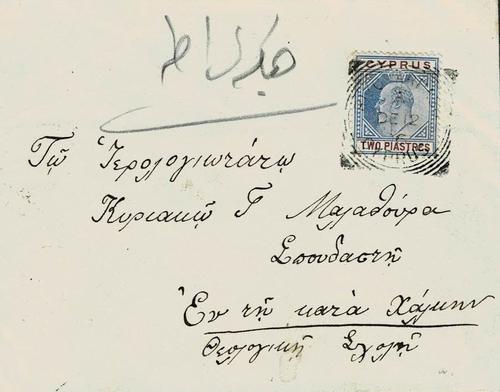 CYPRUS
DE 12
TWO PIASTRES
Τῷ Ἱερολογιωτάτῳ
Κυριακῷ Γ Μαλαθούρα
Σπουδαστῇ
Ἐν τῇ κατὰ Χάλκην
Θεολογικῇ Σχολῇ